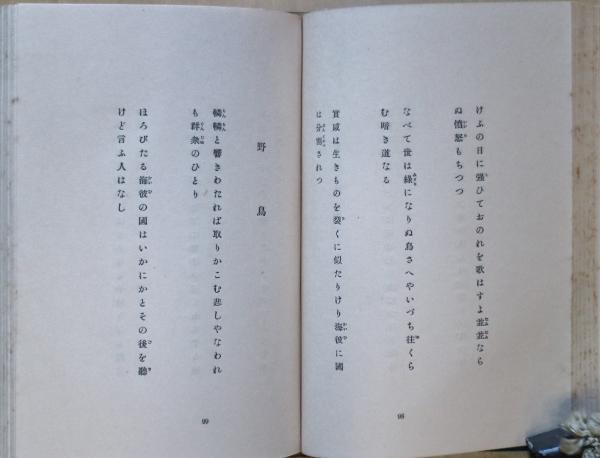 けふの日に强ひておのれを歌はすよ並並なら
ぬ憤怒もちつつ
なべて世は綠になりぬ鳥さへやいづち往くら
む暗き道なる
實感は生きものを裂くに似たりけり海彼に國
は分割されつ
98
野鳥
轔轔と響きわたれば取りかこむ悲しやなわれ
も群衆のひとり
ほろびたる海彼の國はいかにかとその後を聽
けど言ふ人はなし
99